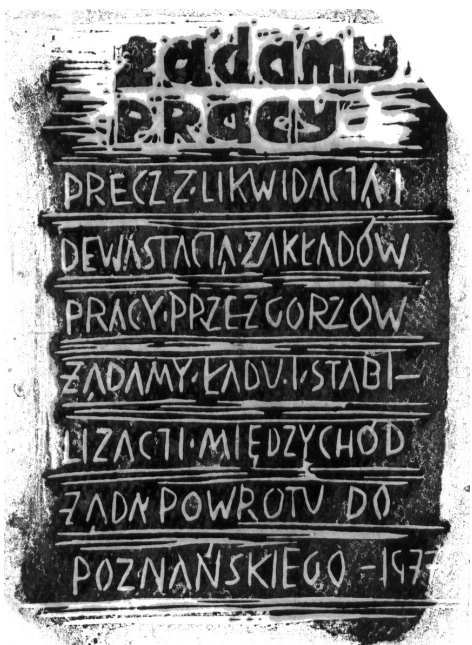 żądamy
pracy
PRECZ Z·LIKWIDACJĄ I
DEWASTACJĄ·ZAKŁADÓW
PRACY·PRZEZ GORZÓW
ŻĄDAMY·ŁADU·I·STABI—
LIZACJI·MIĘDZYCHÓD
ŻĄDA POWROTU DO
POZNAŃSKIEGO - 1977